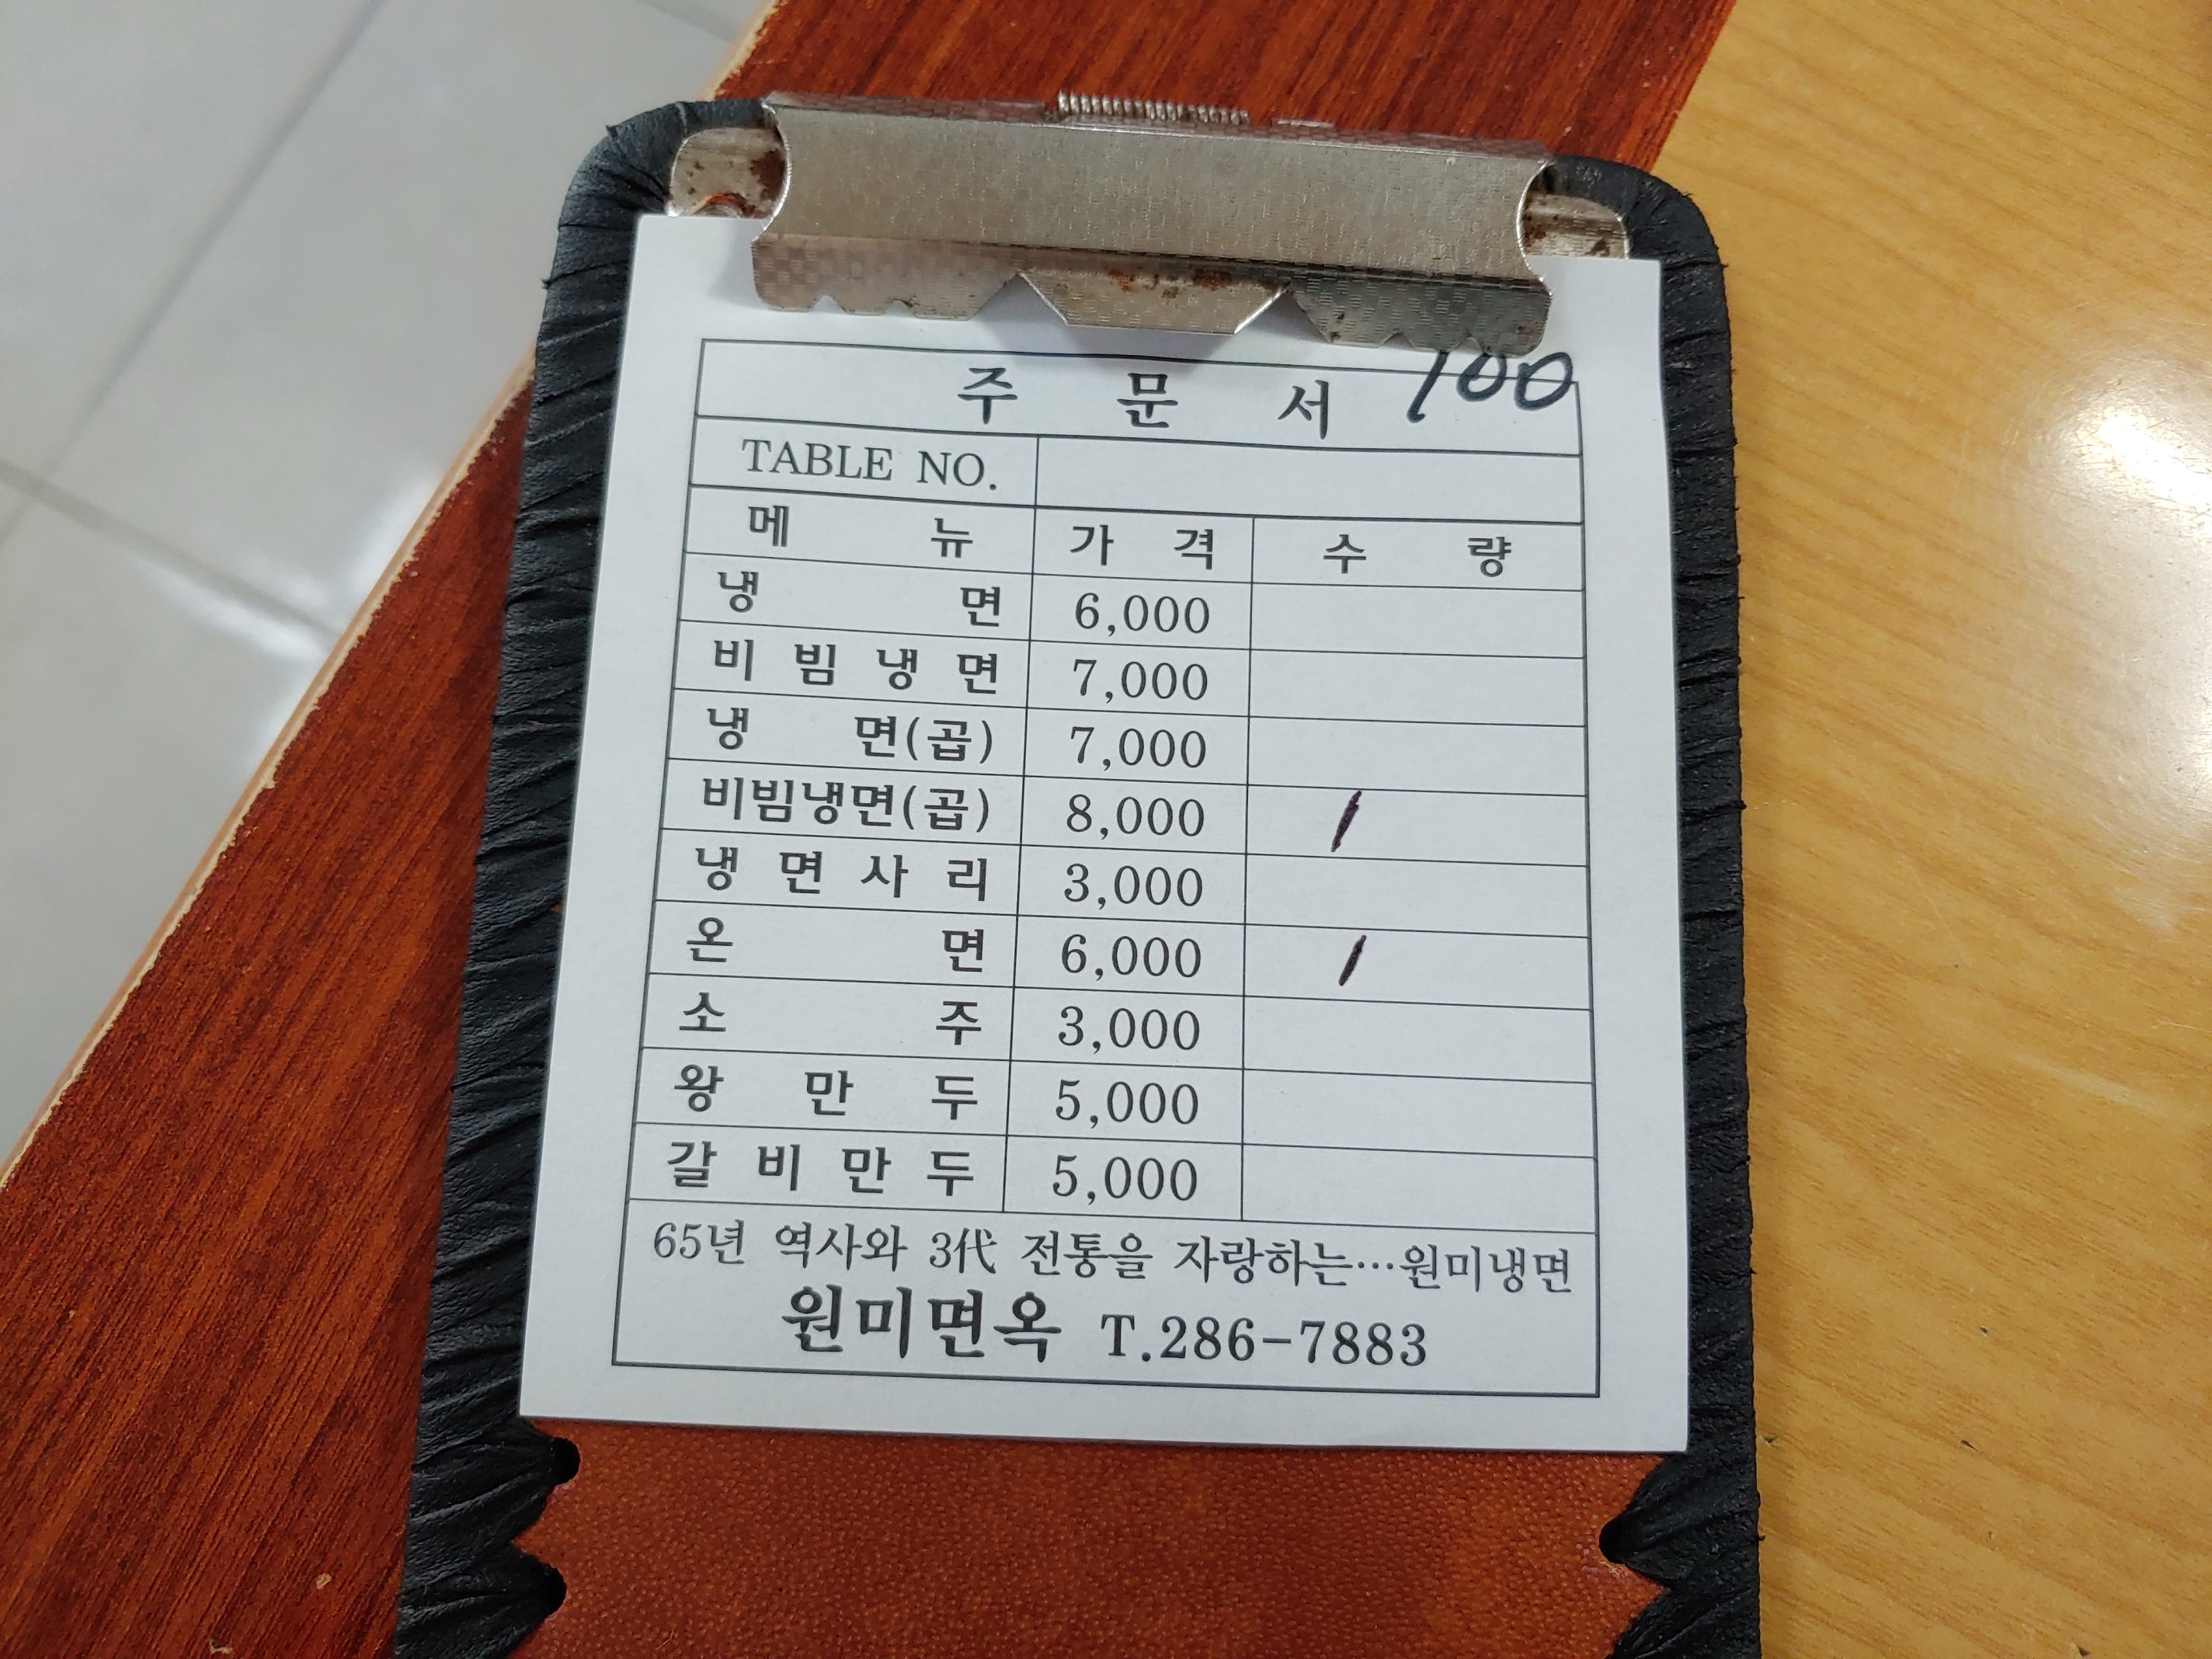 주 문 서 100
TABLE NO.
메 뉴 가 격 수 량
냉 면 6,000
비 빔 냉 면 7,000
냉 면(곱) 7,000
비빔냉면(곱) 8,000 /
냉 면 사 리 3,000
온 면 6,000 /
소 주 3,000
왕 만 두 5,000
갈 비 만 두 5,000
65년 역사와 3代 전통을 자랑하는…원미냉면
원미면옥 T.286-7883